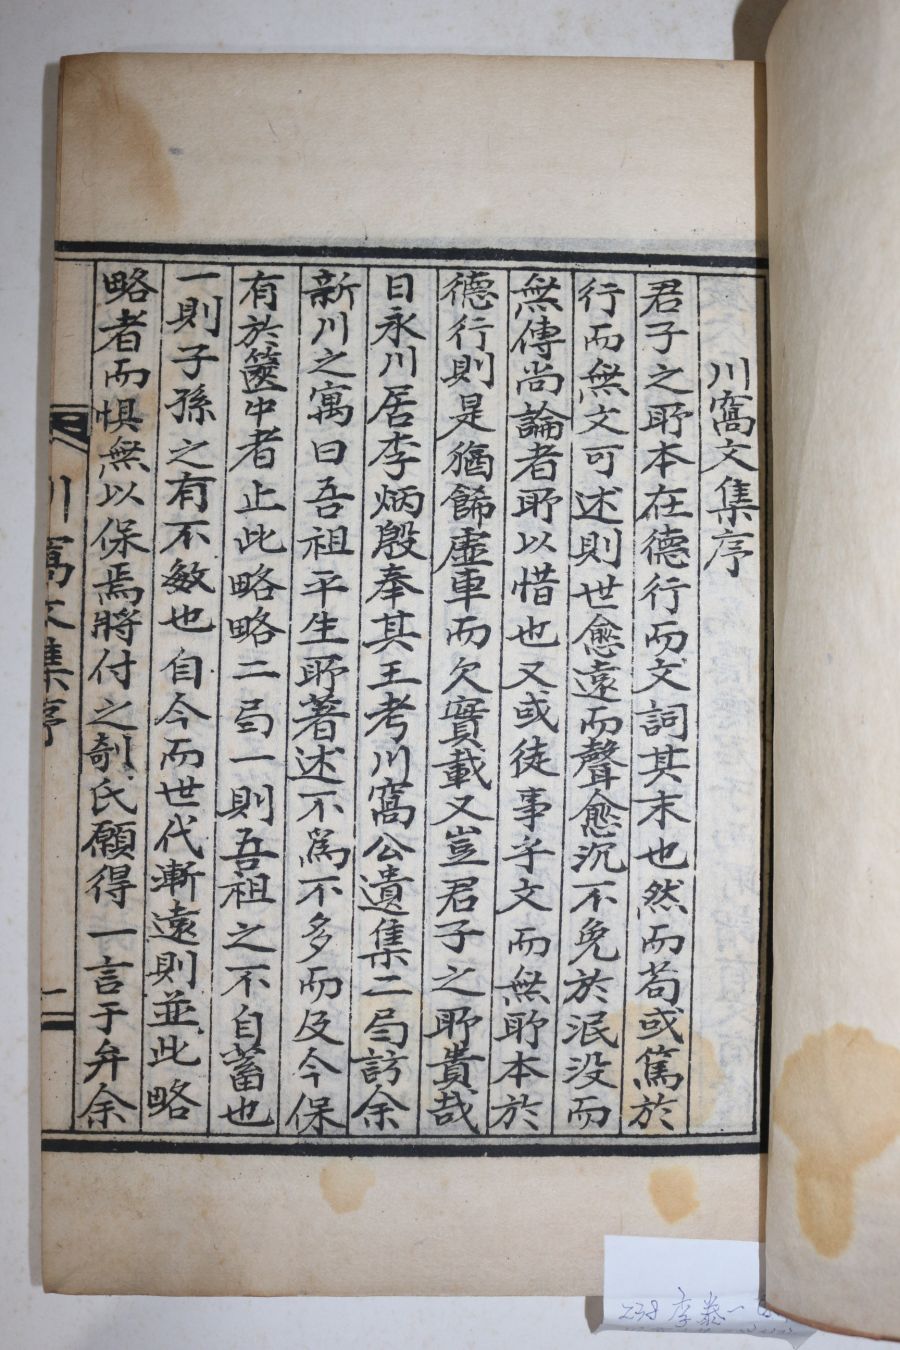 川窩文集序
君子之所本在德行而文詞其末也然而苟或篤於
行而無文可述則世愈遠而聲愈沉不免於泯没而
無傳尚論者所以惜也又或徒事乎文而無所本於
德行則是猶餙虛車而欠實載又豈君子之所貴哉
日永川居李炳殷奉其王考川窩公遺集二局訪余
新川之寓曰吾祖平生所著述不爲不多而及今保
有於篋中者止此略略二局一則吾祖之不自蓄也
一則子孫之有不敏也自今而世代漸遠則並此略
略者而惧無以保焉將付之剞氏願得一言于弁余
川窩文集序
一
238 李泰一